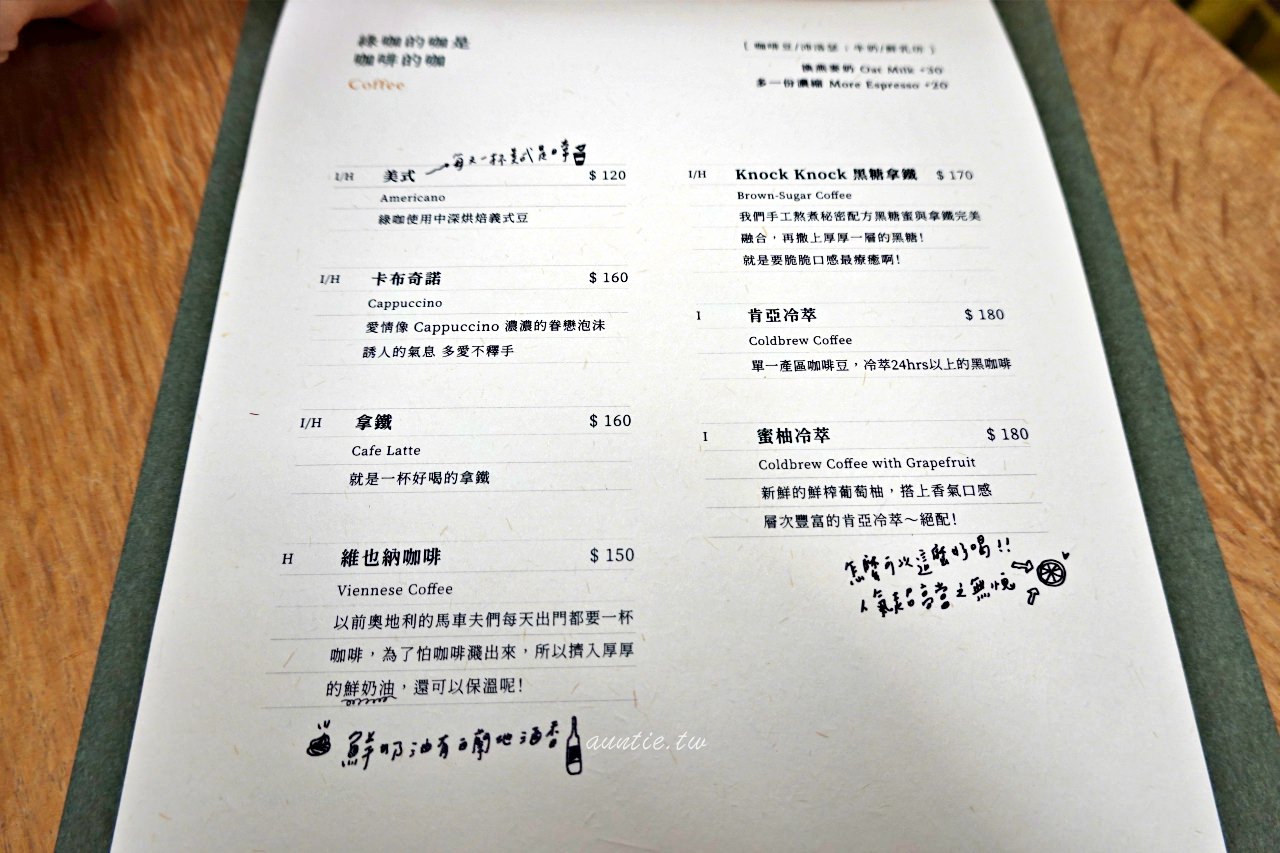 綠咖的咖是
咖啡的咖
Coffee
[ 咖啡豆/沛洛瑟 ; 牛奶/鮮乳坊 ]
換燕麥奶 Oat Milk +30
多一份濃縮 More Espresso +20
每天一杯美式是日常
I/H 美式 $ 120
Americano
綠咖使用中深烘焙義式豆
I/H 卡布奇諾 $ 160
Cappuccino
愛情像 Cappuccino 濃濃的眷戀泡沫
誘人的氣息 多愛不釋手
I/H 拿鐵 $ 160
Cafe Latte
就是一杯好喝的拿鐵
H 維也納咖啡 $ 150
Viennese Coffee
以前奧地利的馬車夫們每天出門都要一杯
咖啡，為了怕咖啡濺出來，所以擠入厚厚
的鮮奶油，還可以保溫呢!
鮮奶油有白蘭地酒香
I/H Knock Knock 黑糖拿鐵 $ 170
Brown-Sugar Coffee
我們手工熬煮秘密配方黑糖蜜與拿鐵完美
融合，再撒上厚厚一層的黑糖!
就是要脆脆口感最療癒啊!
I 肯亞冷萃 $ 180
Coldbrew Coffee
單一產區咖啡豆，冷萃24hrs以上的黑咖啡
I 蜜柚冷萃 $ 180
Coldbrew Coffee with Grapefruit
新鮮的鮮榨葡萄柚，搭上香氣口感
層次豐富的肯亞冷萃～絕配!
怎麼可以這麼好喝!!
人氣高當之無愧
auntie.tw